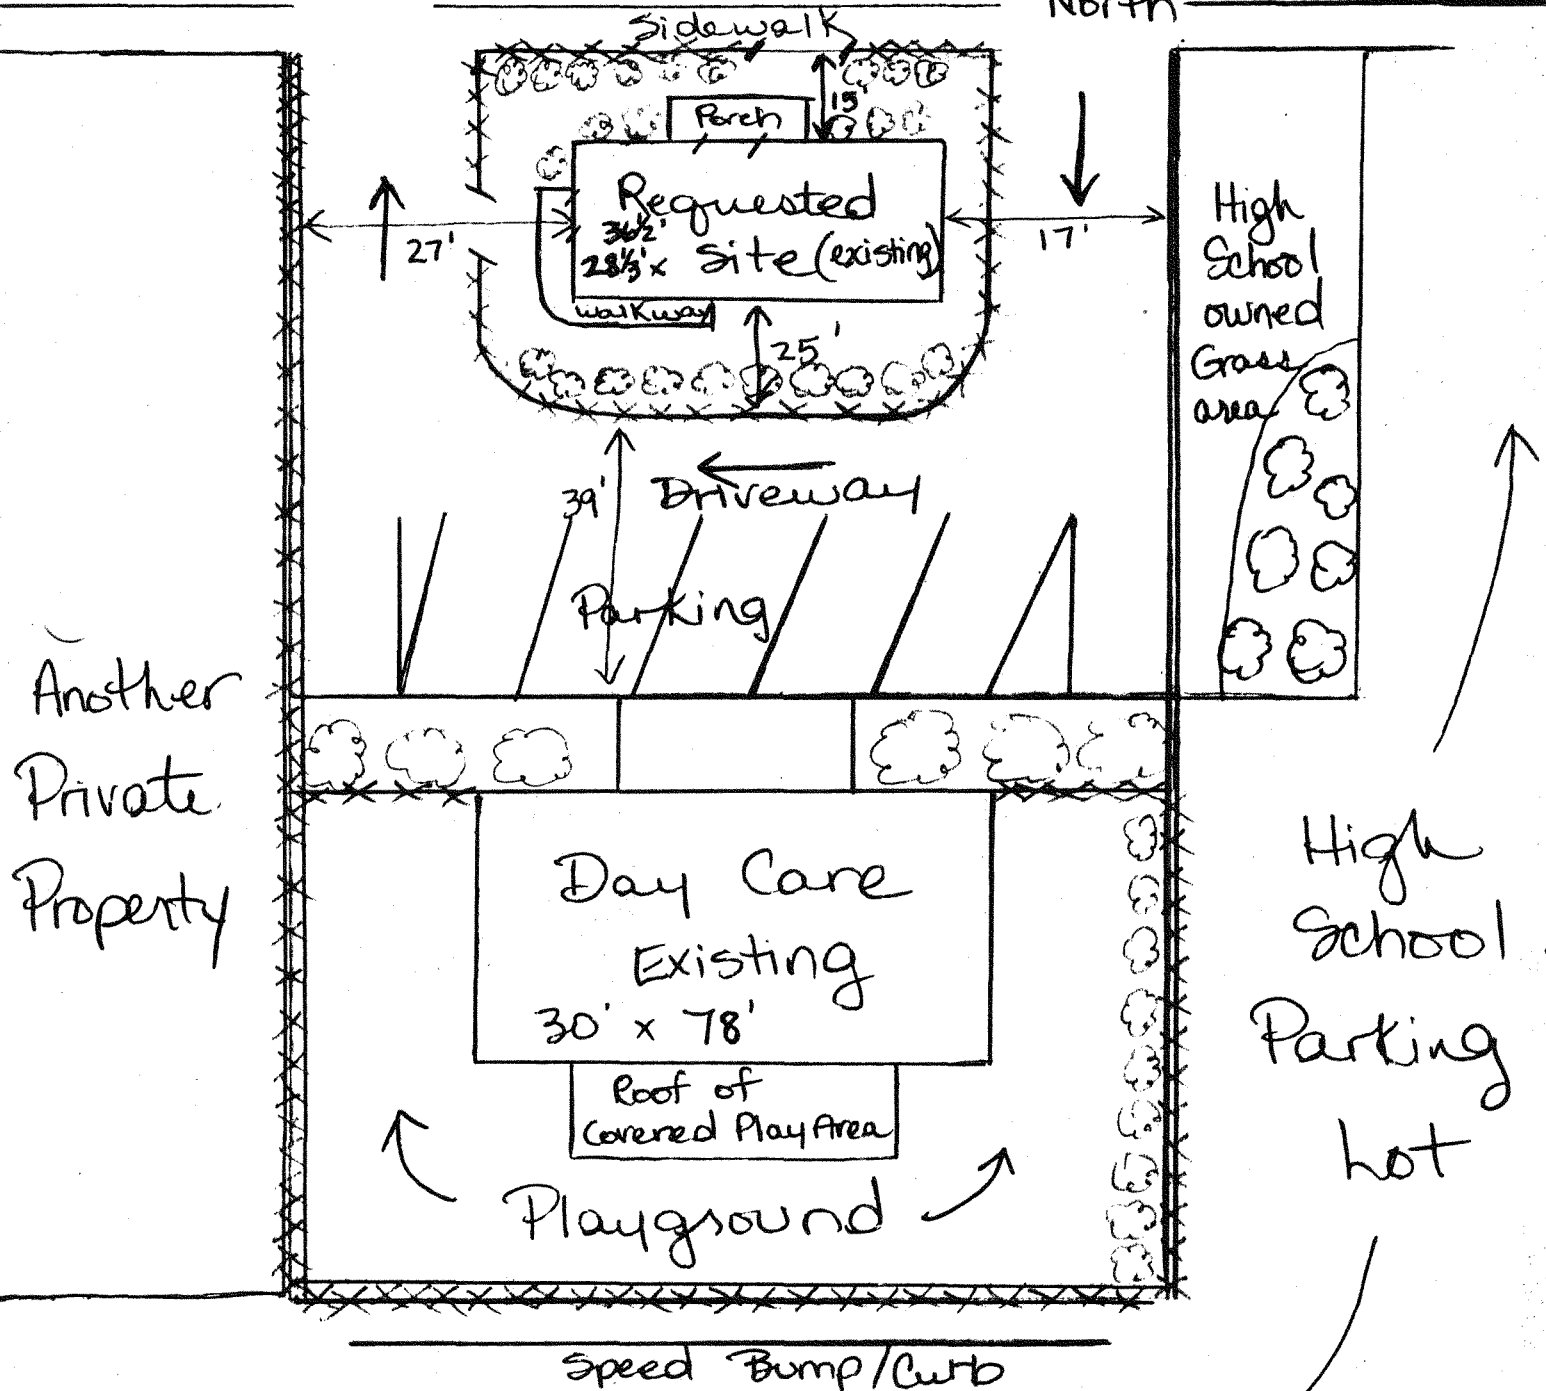 North
Sidewalk
15'
Porch
Requested
36½'
28⅓' x Site (existing)
27'
17'
walkway
25'
High
School
owned
Grass
area
39'
Driveway
Parking
Another
Private
Property
Day Care
Existing
30' x 78'
Roof of
Covered Play Area
Playground
High
School
Parking
Lot
Speed Bump/Curb